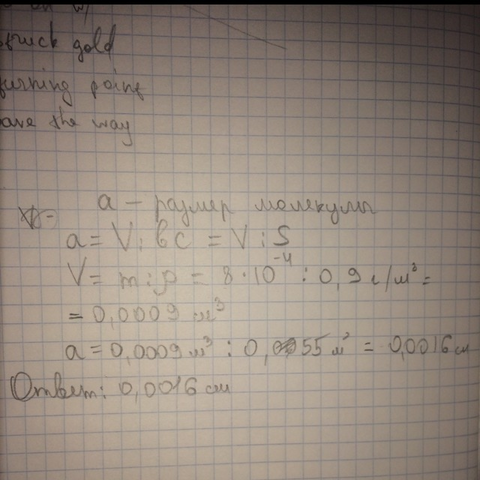 struck gold
turning point
pave the way
a – размер молекулы
a = V : bc = V : S
V = m : ρ = 8 · 10⁻⁴ : 0,9 г/м³ =
= 0,0009 м³
a = 0,0009 м³ : 0,0055 м² = 0,0016 см
Ответ: 0,0016 см